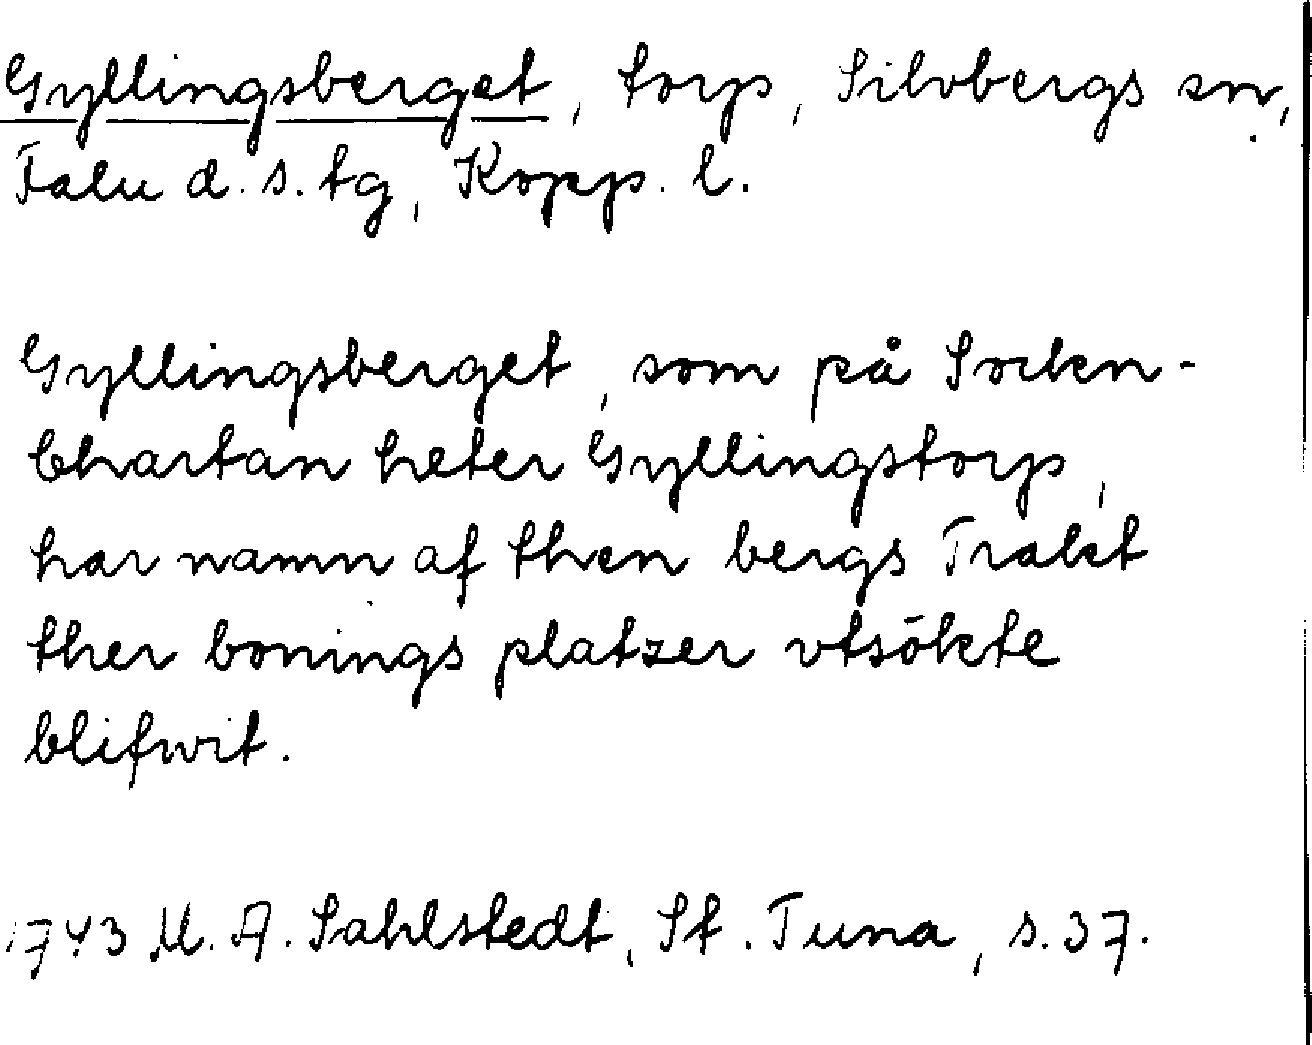 Gyllingsberget, torp, Silvbergs sn,
Falu d.s. tg, Kopp. l.
Gyllingsberget, som på Socken-
Chartan heter Gyllingstorp,
har namn af then bergs Trakt
ther bonings platzer vtsökte
blifwit.
1743 M. A. Sahlstedt, St. Tuna, s. 37.